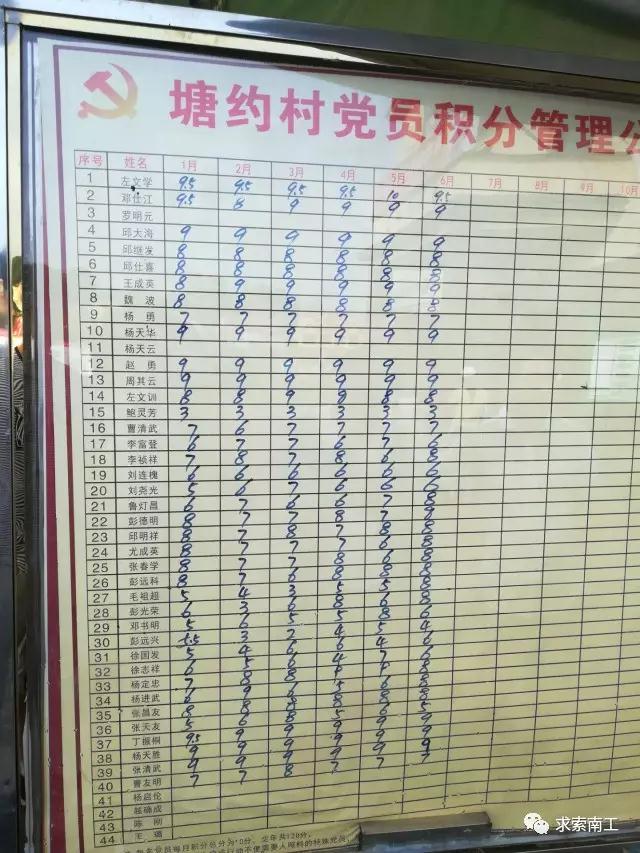 塘约村党员积分管理
序号 姓名 1月 2月 3月 4月 5月 6月 7月 8月 9月 10月
1 左文学 9.5 9.5 9.5 9.5 10 9.5
2 邓仕江 9.5 8 9 9 9 9
3 罗明元
4 邱大海 9 9 9 9 9 9
5 邱继发 8 8 8 8 8 8
6 邱仕喜 8 8 8 8 8 8
7 王成英 8 9 9 9 9 9
8 魏 波 8 8 8 8 8 8
9 杨 勇 7 7 7 7 7 7
10 杨天华 9 9 9 9 9 9
11 杨天云
12 赵 勇 9 9 9 9 9 9
13 周其云 9 9 9 9 9 9
14 左文训 8 8 9 9 8 8
15 鲍灵芳 3 3 3 3 3 3
16 曹清武 7 6 7 7 7 7
17 李富登 6 7 7 6 7 6
18 李祯祥 7 8 7 8 6 6
19 刘连槐 6 6 6 6 6 6
20 刘尧光 5 6 7 6 6 6
21 鲁灯昌 6 7 6 6 7 8
22 彭德明 8 7 7 8 7 9
23 邱明祥 8 7 8 7 8 8
24 尤成英 8 7 7 7 6 8
25 张春学 8 7 7 8 8
26 彭远科 8 7 6 8 8
27 毛祖超 5 4 3 5 5 8
28 彭光荣 6 3 6 8 6 8
29 邓书明 6 7 5 5 8 6
30 彭远兴 3 2 4 5 4
31 徐国发 5 4 6 6 4 6
32 徐志祥 6 5 6 4 7 6
33 杨定忠 7 6 8 8 8
34 杨进武 6 9 6 5 6 8
35 张昌友 8 8 8 8 8 8
36 张天友 5 6 8 5 6 5
37 丁振桐 9.5 9 9 9 9 9
38 杨天胜 9 9 9 9 9 9
39 张清武 9 9 9 9 9 9
40 曹友明 7 7 8 7 7 7
41 杨启伦
42
43 陈 刚
44 王 璐
求索南工